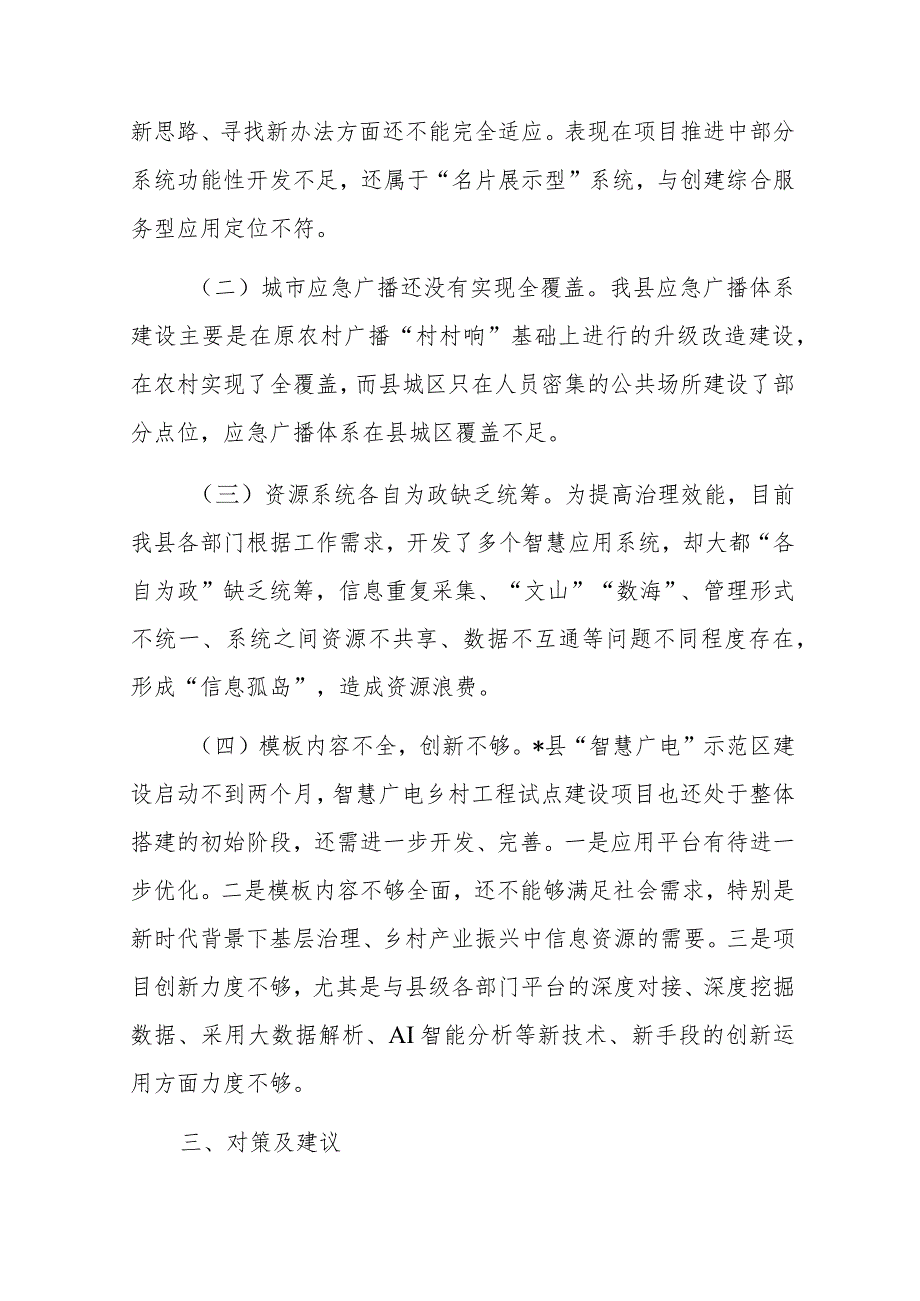 新思路、寻找新办法方面还不能完全适应。表现在项目推进中部分
系统功能性开发不足，还属于“名片展示型”系统，与创建综合服
务型应用定位不符。
（二）城市应急广播还没有实现全覆盖。我县应急广播体系
建设主要是在原农村广播“村村响”基础上进行的升级改造建设，
在农村实现了全覆盖，而县城区只在人员密集的公共场所建设了部
分点位，应急广播体系在县城区覆盖不足。
（三）资源系统各自为政缺乏统筹。为提高治理效能，目前
我县各部门根据工作需求，开发了多个智慧应用系统，却大都“各
自为政”缺乏统筹，信息重复采集、“文山”“数海”、管理形式
不统一、系统之间资源不共享、数据不互通等问题不同程度存在，
形成“信息孤岛”，造成资源浪费。
（四）模板内容不全，创新不够。*县“智慧广电”示范区建
设启动不到两个月，智慧广电乡村工程试点建设项目也还处于整体
搭建的初始阶段，还需进一步开发、完善。一是应用平台有待进一
步优化。二是模板内容不够全面，还不能够满足社会需求，特别是
新时代背景下基层治理、乡村产业振兴中信息资源的需要。三是项
目创新力度不够，尤其是与县级各部门平台的深度对接、深度挖掘
数据、采用大数据解析、AI 智能分析等新技术、新手段的创新运
用方面力度不够。
三、对策及建议